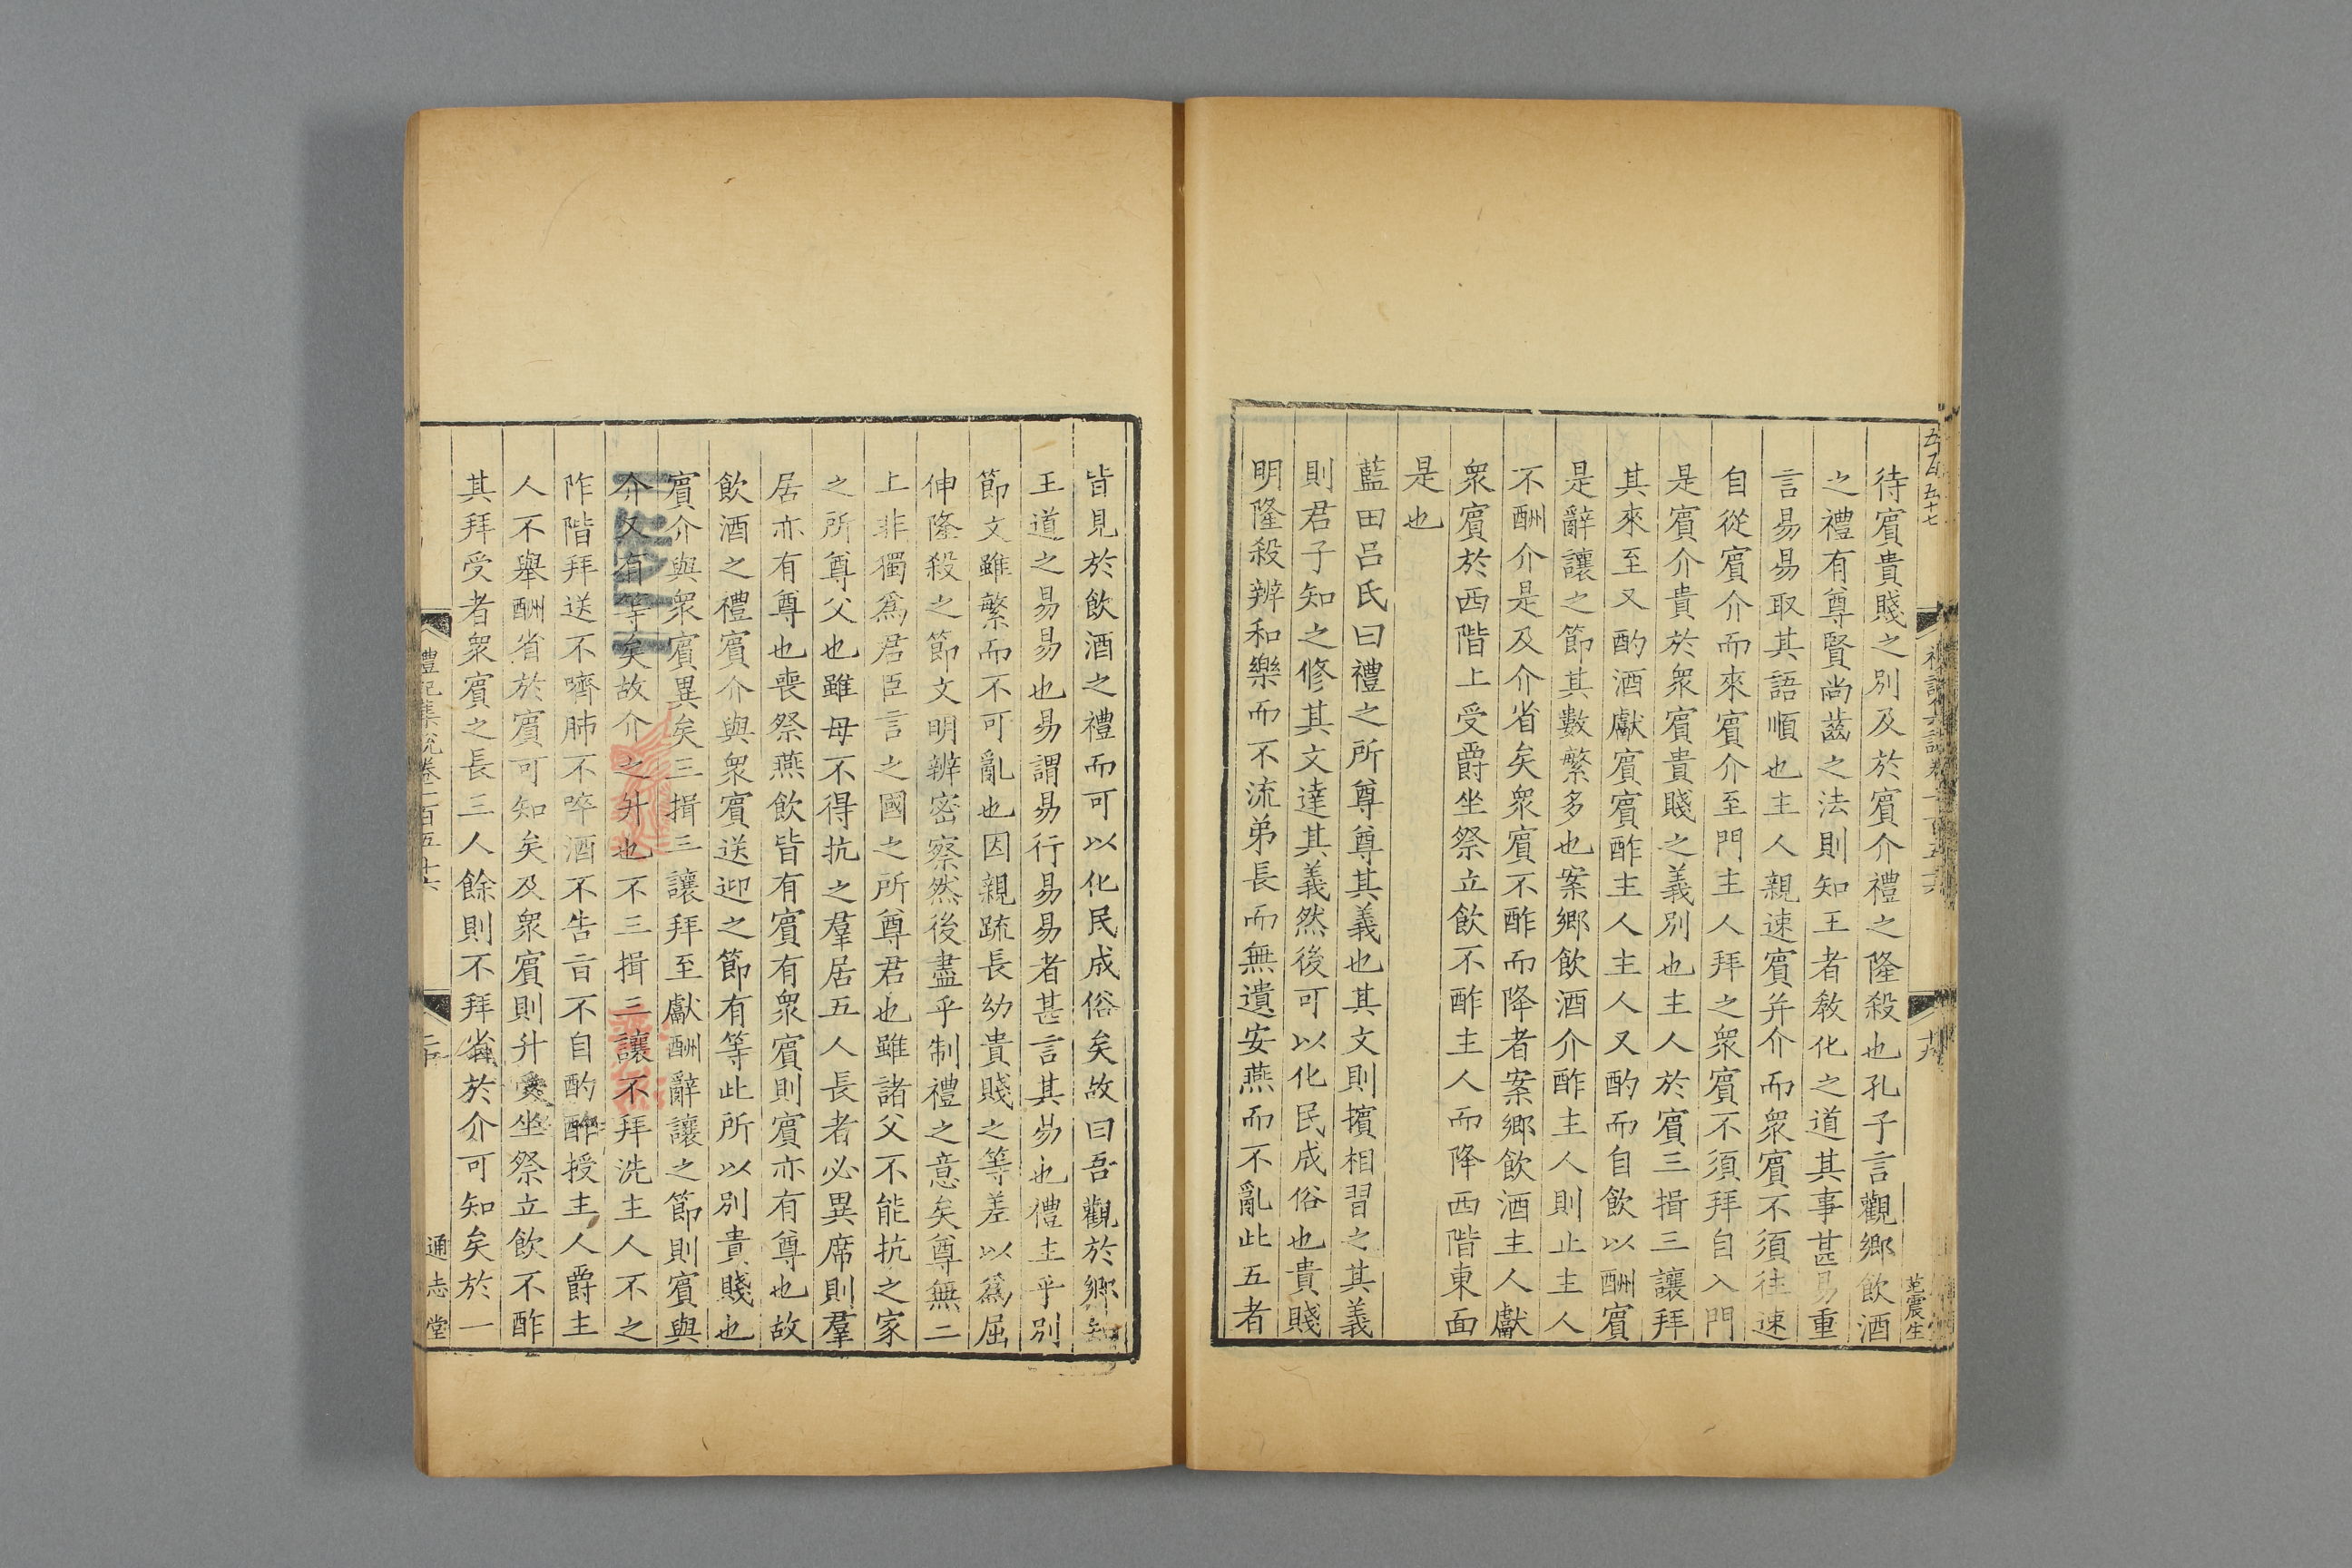 待賔貴賤之別及於賔介禮之隆殺也孔子言觀鄉飲酒
之禮有尊賢尚齒之法則知王者敎化之道其事甚易重
言易易取其語順也主人親速賔并介而衆賔不須往速
自從賔介而來賔介至門主人拜之衆賔不須拜自入門
是賔介貴於衆賔貴賤之義別也主人於賔三揖三讓拜
其來至又酌酒獻賔賔酢主人主人又酌而自飲以酬賔
是辭讓之節其數繁多也案鄉飲酒介酢主人則止主人
不酬介是及介省矣衆賔不酢而降者案鄉飲酒主人獻
衆賔於西階上受爵坐祭立飲不酢主人而降西階東面
是也
藍田呂氏曰禮之所尊尊其義也其文則擯相習之其義
則君子知之修其文達其義然後可以化民成俗也貴賤
明隆殺辨和樂而不流弟長而無遺安燕而不亂此五者
五百五十七
范震生
皆見於飲酒之禮而可以化民成俗矣故曰吾觀於鄉知
王道之易易也易謂易行易易者甚言其易也禮主乎別
節文雖繁而不可亂也因親疏長幼貴賤之等差以爲屈
伸隆殺之節文明辨密察然後盡乎制禮之意矣尊無二
上非獨爲君臣言之國之所尊君也雖諸父不能抗之家
之所尊父也雖母不得抗之羣居五人長者必異席則羣
居亦有尊也喪祭燕飲皆有賔有衆賔則賔亦有尊也故
飲酒之禮賔介與衆賔送迎之節有等此所以別貴賤也
賔介與衆賔異矣三揖三讓拜至獻酬辭讓之節則賔與
介又有等矣故介之升也不三揖三讓不拜洗主人不之
阼階拜送不嚌肺不啐酒不告旨不自酌酢授主人爵主
人不舉酬省於賔可知矣及衆賔則升受坐祭立飲不酢
其拜受者衆賔之長三人餘則不拜省於介可知矣於一
禮記集說卷一百五十六
二十
通志堂